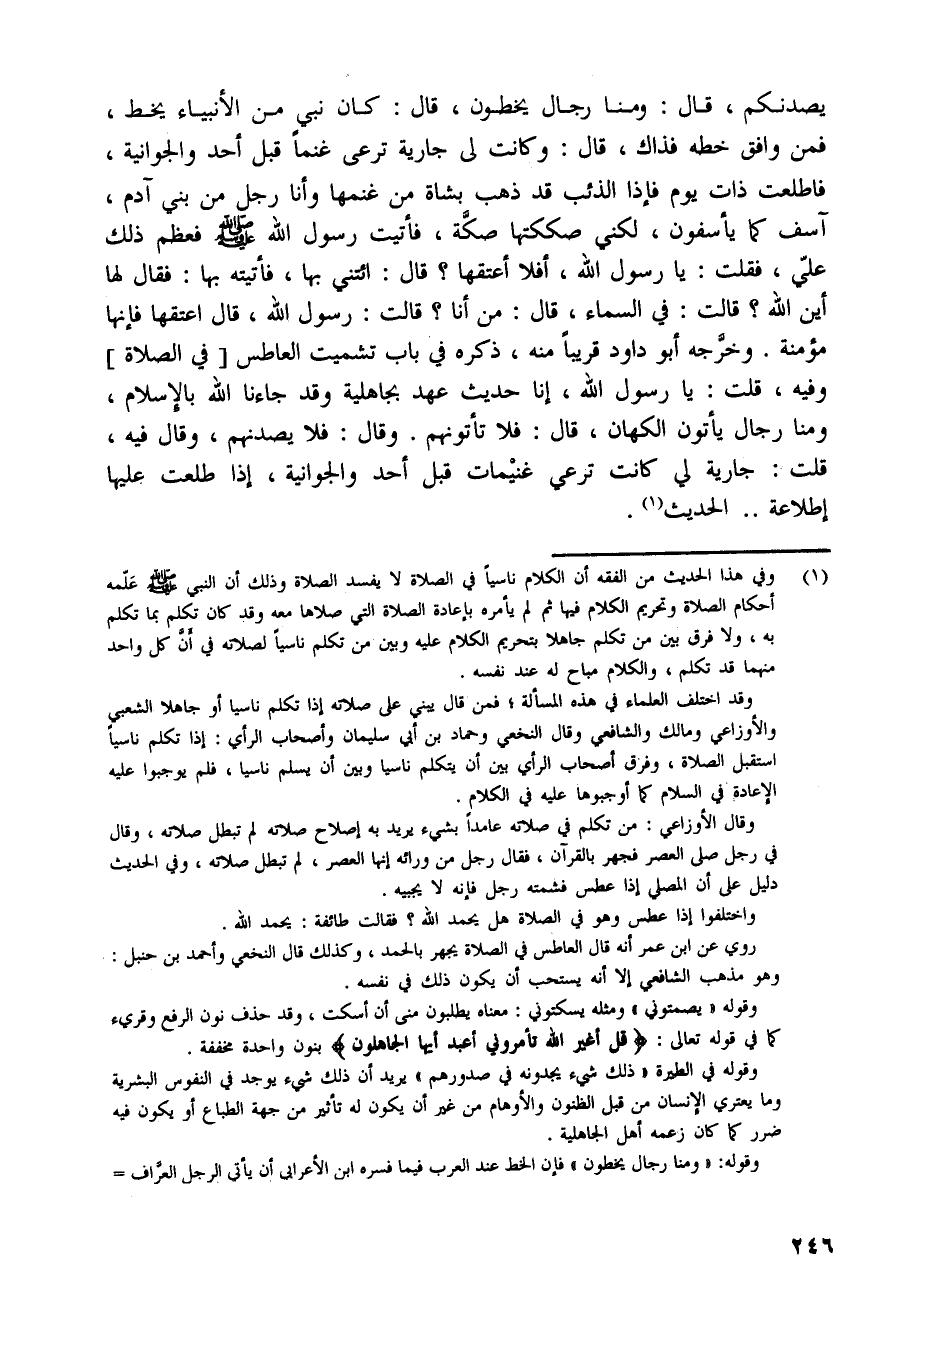 يصدنكم ، قال : ومنا رجال يخطون ، قال : كان نبي من الأنبياء يخط ،
فمن وافق خطه فذاك ، قال : وكانت لى جارية ترعى غنماً قبل أحد والجوانية ،
فاطلعت ذات يوم فإذا الذئب قد ذهب بشاة من غنمها وأنا رجل من بني آدم ،
آسف كما يأسفون ، لكني صككتها صكَّة ، فأتيت رسول الله ﷺ فعظم ذلك
عليّ ، فقلت : يا رسول الله ، أفلا أعتقها ؟ قال : ائتني بها ، فأتيته بها : فقال لها
أين الله ؟ قالت : في السماء ، قال : من أنا ؟ قالت : رسول الله ، قال اعتقها فإنها
مؤمنة . وخرَّجه أبو داود قريباً منه ، ذكره في باب تشميت العاطس [ في الصلاة ]
وفيه ، قلت : يا رسول الله ، إنا حديث عهد بجاهلية وقد جاءنا الله بالإسلام ،
ومنا رجال يأتون الكهان ، قال : فلا تأتونهم . وقال : فلا يصدنهم ، وقال فيه ،
قلت : جارية لي كانت ترعي غنيْمات قبل أحد والجوانية ، إذا طلعت عليها
إطلاعة .. الحديث(١) .
(١) وفي هذا الحديث من الفقه أن الكلام ناسياً في الصلاة لا يفسد الصلاة وذلك أن النبي ﷺ عَلّمه
أحكام الصلاة وتحريم الكلام فيها ثم لم يأمره بإعادة الصلاة التي صلاها معه وقد كان تكلم بما تكلم
به ، ولا فرق بين من تكلم جاهلا بتحريم الكلام عليه وبين من تكلم ناسياً لصلاته في أنَّ كل واحد
منهما قد تكلم ، والكلام مباح له عند نفسه .
وقد اختلف العلماء في هذه المسألة ؛ فمن قال يبني على صلاته إذا تكلم ناسيا أو جاهلا الشعبي
والأوزاعي ومالك والشافعي وقال النخعي وحماد بن أبي سليمان وأصحاب الرأي : إذا تكلم ناسياً
استقبل الصلاة ، وفرق أصحاب الرأي بين أن يتكلم ناسيا وبين أن يسلم ناسيا ، فلم يوجبوا عليه
الإعادة في السلام كما أوجبوها عليه في الكلام .
وقال الأوزاعي : من تكلم في صلاته عامداً بشيء يريد به إصلاح صلاته لم تبطل صلاته ، وقال
في رجل صلى العصر فجهر بالقرآن ، فقال رجل من ورائه إنها العصر ، لم تبطل صلاته ، وفي الحديث
دليل على أن المصلي إذا عطس فشمته رجل فإنه لا يجيبه .
واختلفوا إذا عطس وهو في الصلاة هل يحمد الله ؟ فقالت طائفة : يحمد الله .
روي عن ابن عمر أنه قال العاطس في الصلاة يجهر بالحمد ، وكذلك قال النخعي وأحمد بن حنبل :
وهو مذهب الشافعي إلا أنه يستحب أن يكون ذلك في نفسه .
وقوله « يصمتوني » ومثله يسكتوني : معناه يطلبون منى أن أسكت ، وقد حذف نون الرفع وقريء
كما في قوله تعالى : ﴿ قل أغير الله تأمروني أعبد أيها الجاهلون ﴾ بنون واحدة مخففة .
وقوله في الطيرة « ذلك شيء يجدونه في صدورهم » يريد أن ذلك شيء يوجد في النفوس البشرية
وما يعتري الإنسان من قبل الظنون والأوهام من غير أن يكون له تأثير من جهة الطباع أو يكون فيه
ضرر كما كان زعمه أهل الجاهلية .
وقوله: « ومنا رجال يخطون » فإن الخط عند العرب فيما فسره ابن الأعرابى أن يأتى الرجل العرَّاف =
٢٤٦